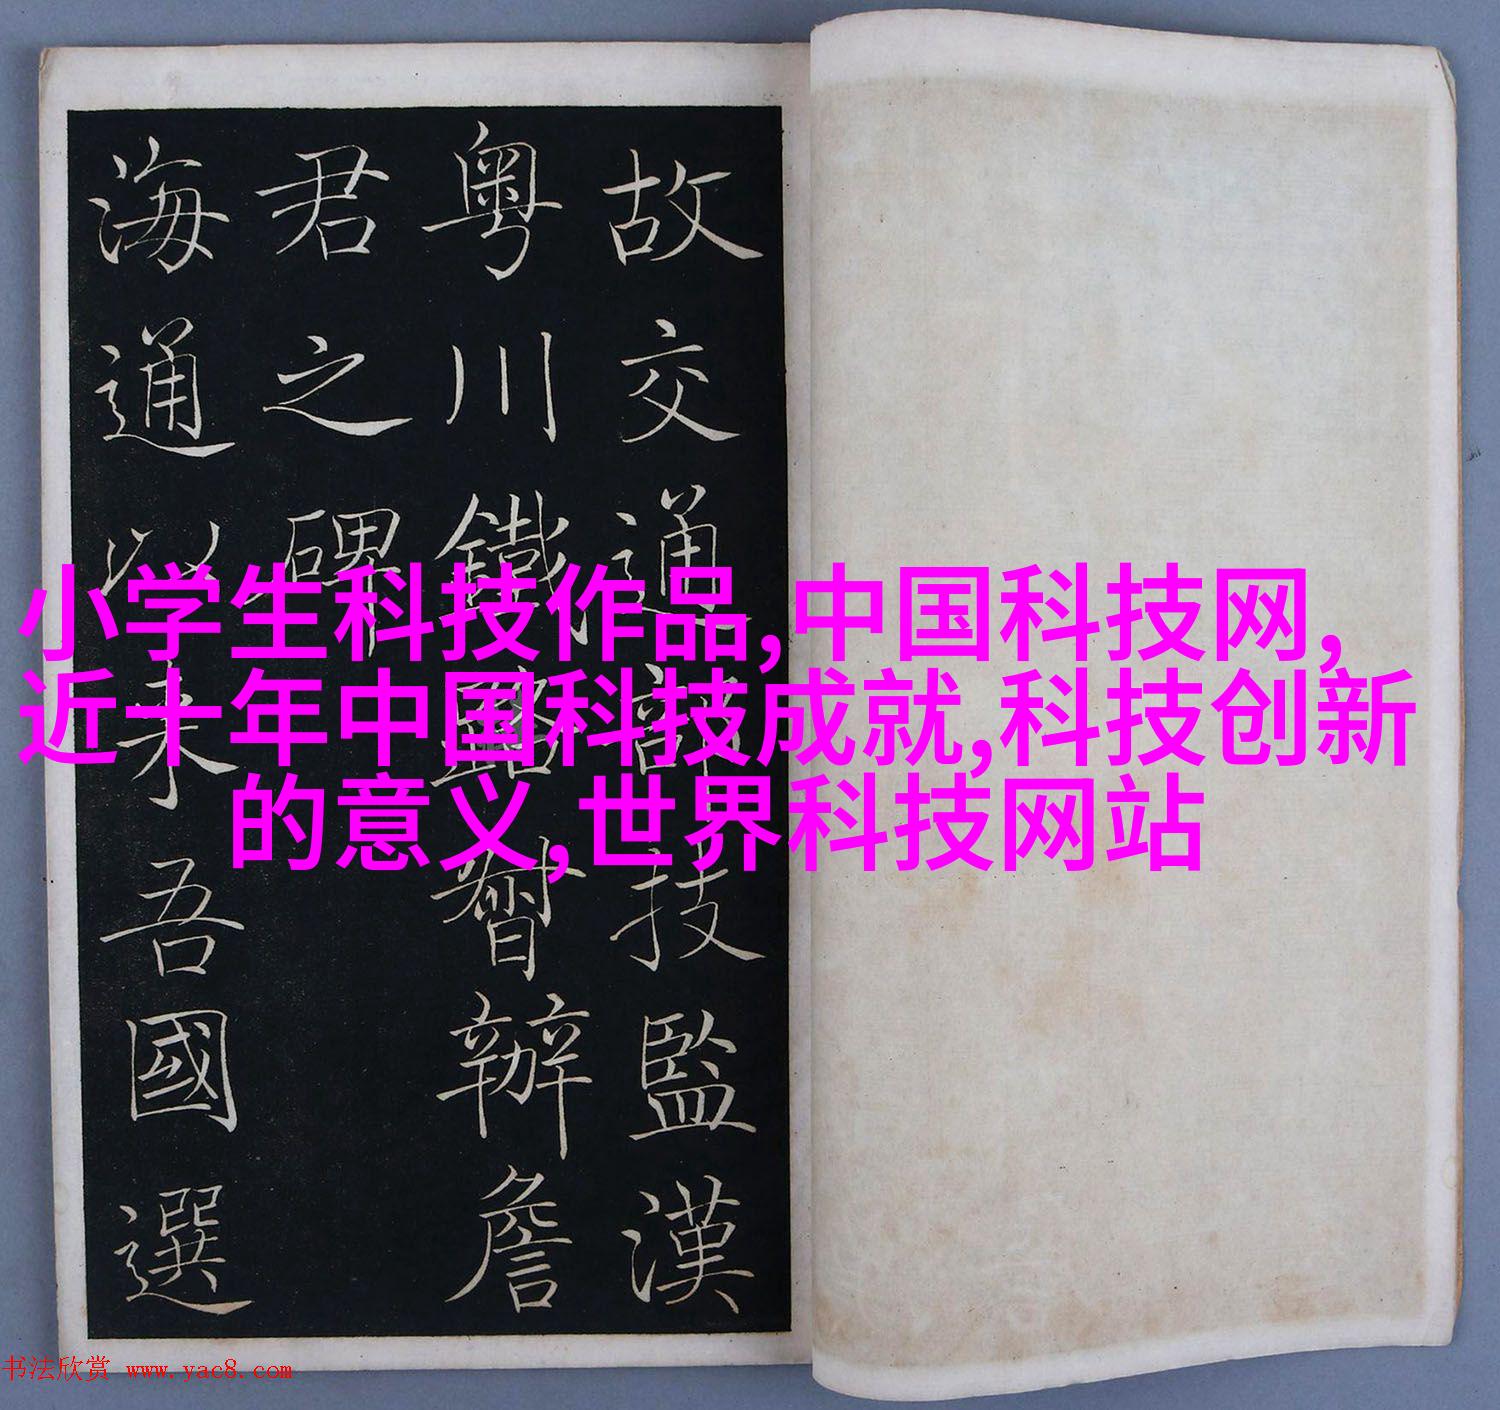 故交通部技監漢
粵川鐵路督辦詹
君之碑
海通以来吾國選
小学生科技作品,中国科技网,
近十年中国科技成就,科技创新
的意义,世界科技网站
书法欣赏 www.yac8.com